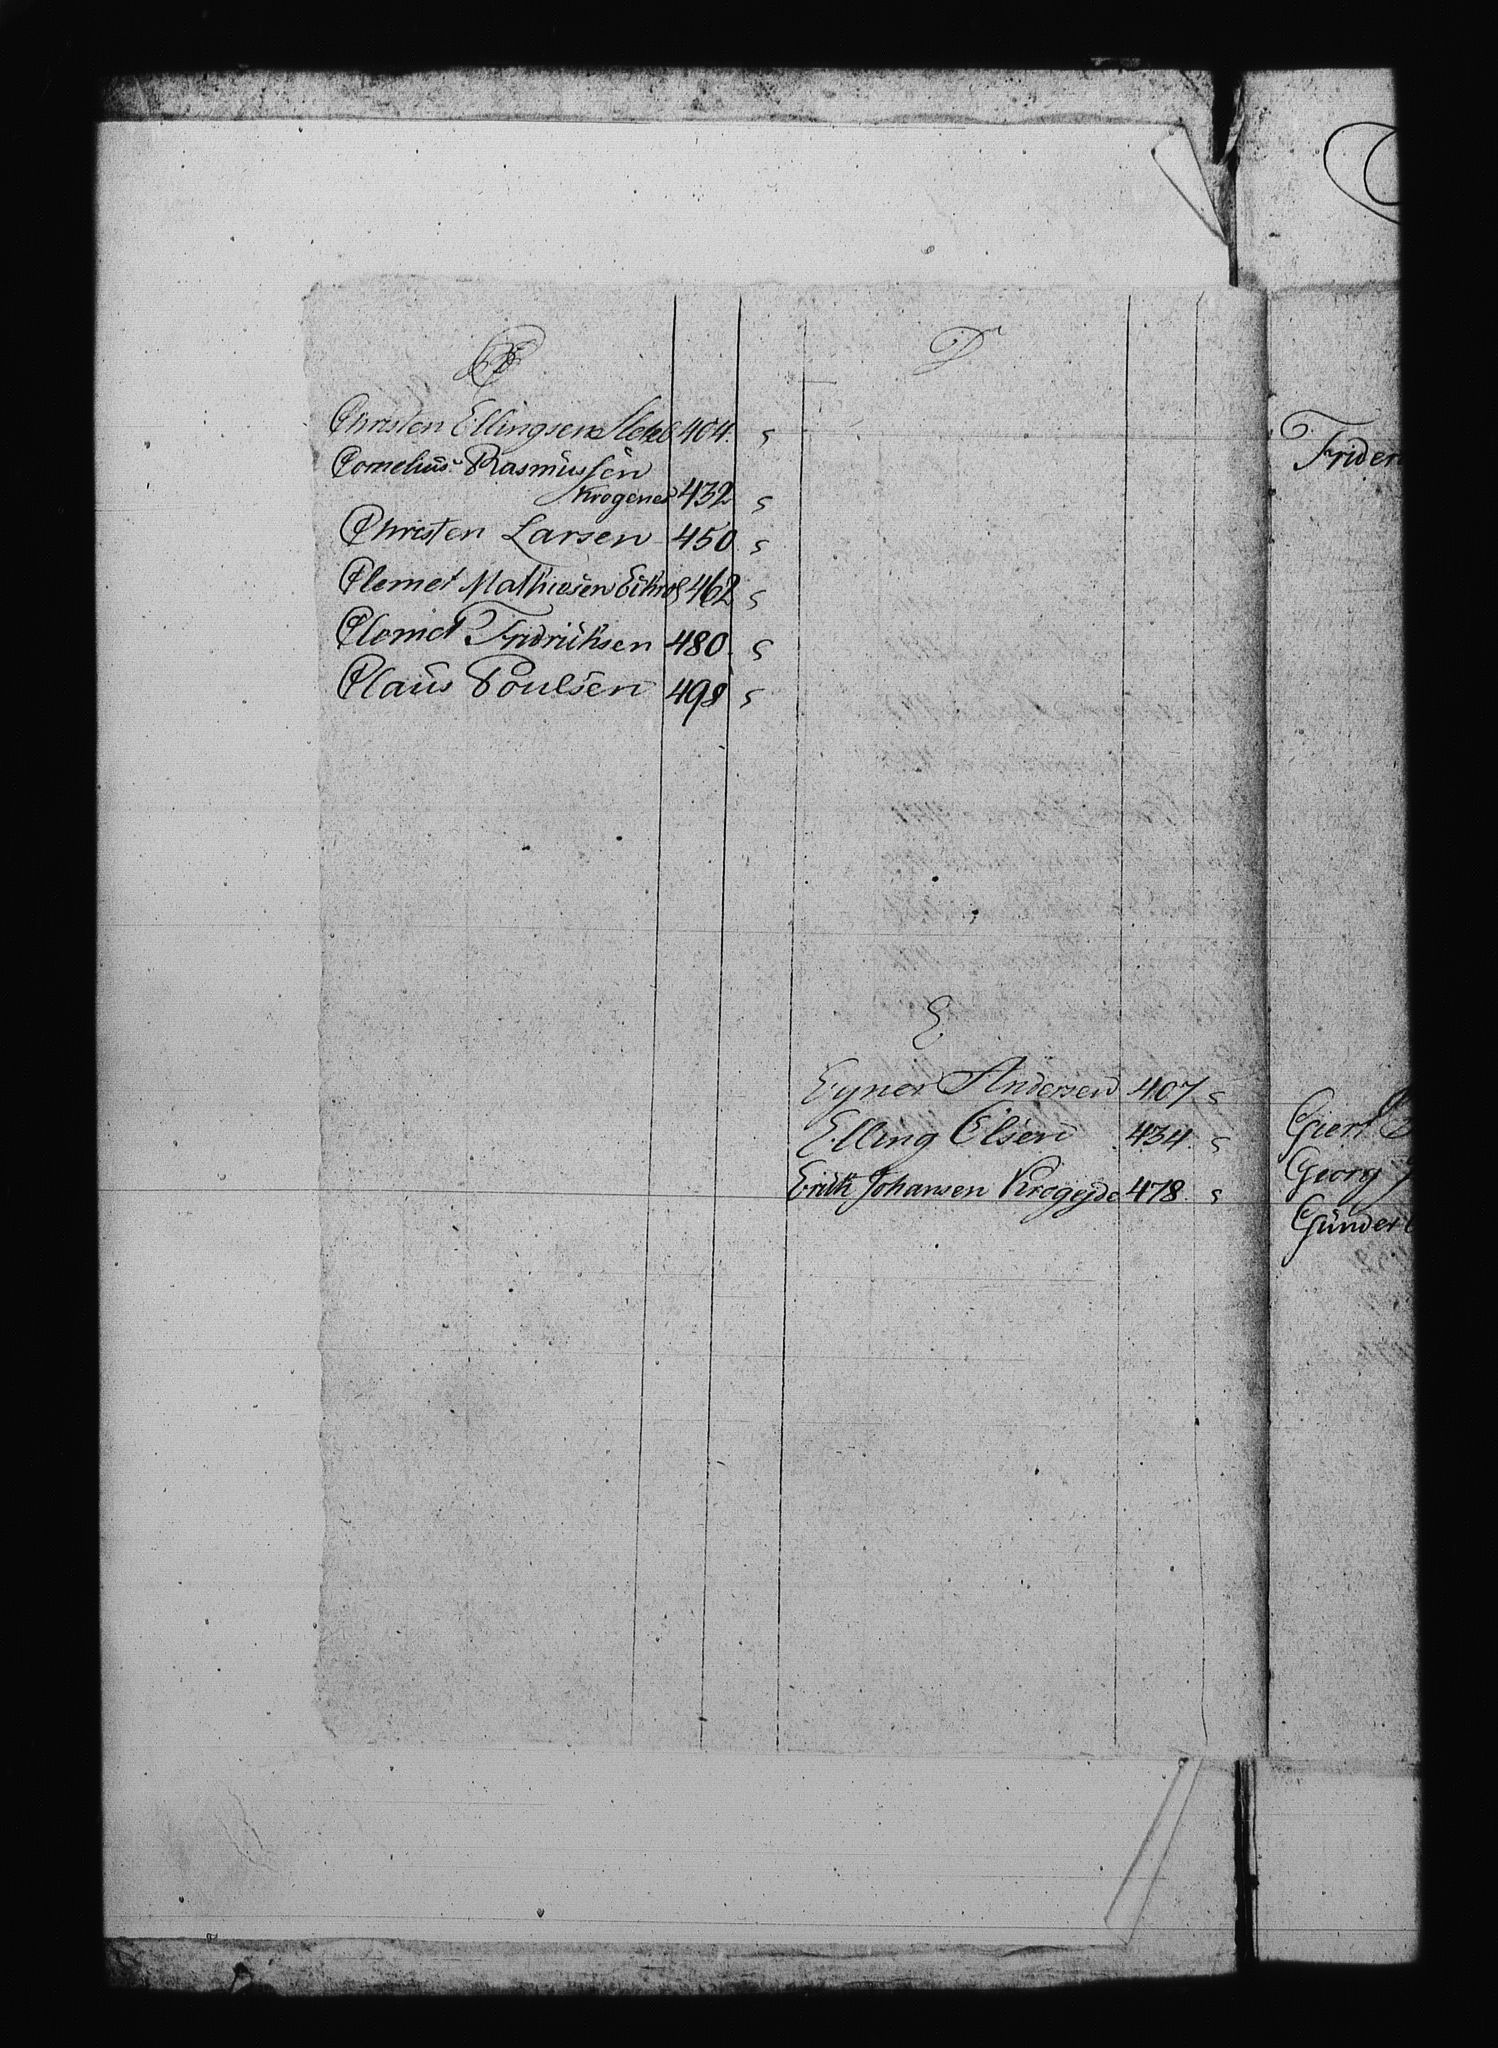 C
Christen Ellingsen 404. s
Cornelius Rasmussen
Krogenes 432 s
Christen Larsen 450 s
Clemet Mathiesen 462 s
Clemet Fridrichsen 480. s
Claus Poulsen 498 s
D
E
Eyner Andersen 407. s
Elling Elsen 434 s
Erich Johansen Krogejde 478 s
Frider
Giert
Georg
Gunder